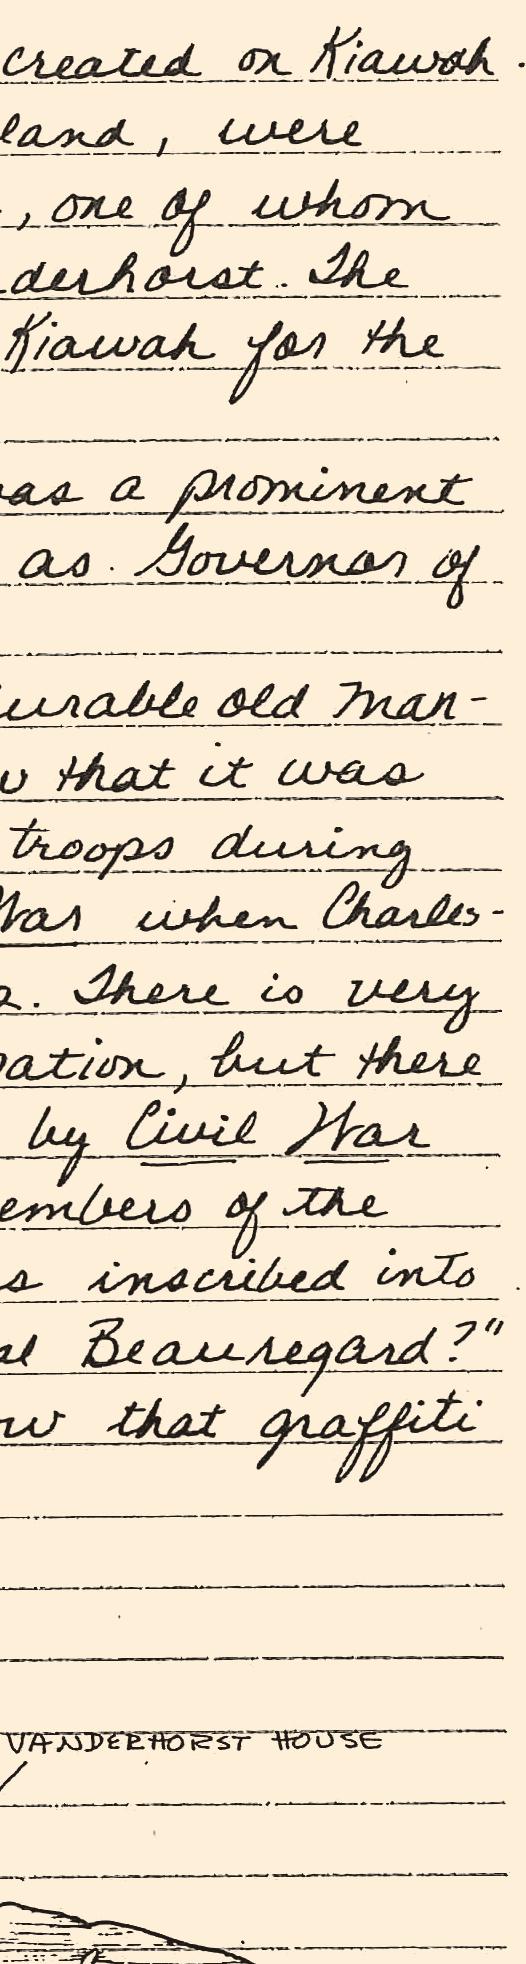 created on Kiawah
land, were
, one of whom
derhorst. The
Kiawah for the
as a prominent
as Governor of
urable old man-
w that it was
troops during
War when Charles-
. There is very
pation, but there
by Civil War
embers of the
s inscribed into
al Beauregard?"
ow that graffiti
VANDERHORST HOUSE